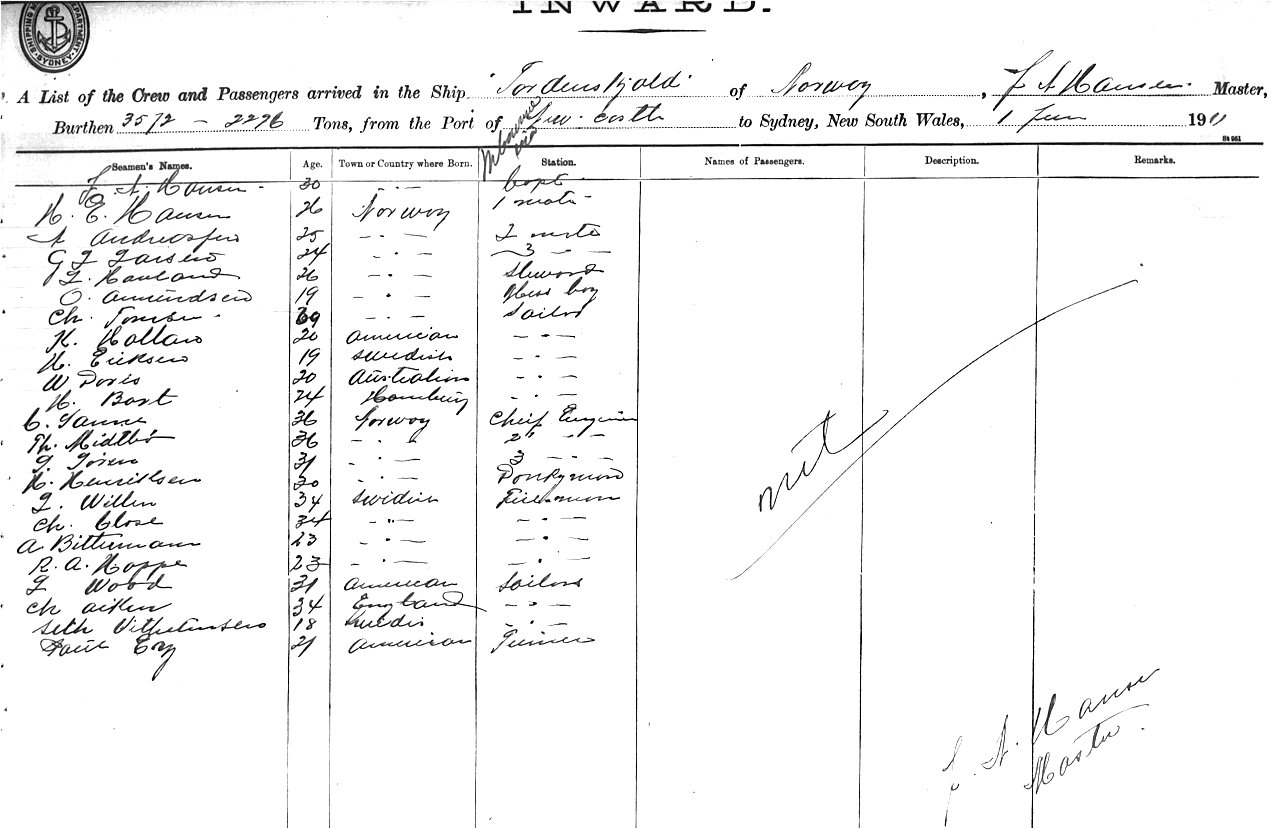 INWARD.
SHIPPING DEPARTMENT SYDNEY
A List of the Crew and Passengers arrived in the Ship "Tordenskjold" of Norway, F A Hansen Master,
Burthen 3572 - 2276 Tons, from the Port of to Sydney, New South Wales, 1 1911
Melbourne via
St 961
Seamen's Names. Age. Town or Country where Born. Station. Names of Passengers. Description. Remarks.
F. A. Hansen 30 - " - Capt
H. E. Hansen 26 Norway 1 mate
A 25 - " - 2 mate
G L Larsen 24 - " - 3 -
L. Hauland 26 - " - Steward
O. Amundsen 19 - " - Mess boy
Ch. - " - Sailor
K. 20 American - " -
H. Eriksen 19 Swedish - " -
W Davis 20 Australian - " -
H. Bart 24 Hamburg - " -
C. 36 Norway Cheif Engineer
Th. Midtbö 36 - " - 2" - " -
31 - " - 3 - " -
H. Henriksen 30 - " - Donkyman
34 Fireman
Ch. Close 34 - " - - " -
A Bittermann 23 - " - - " -
R. A. Hoppe 23 - " - - " -
Wood 31 American Sailor
Ch Aitken 34 England - " -
Seth 18
21 American
nil
F. A. Hansen
Master